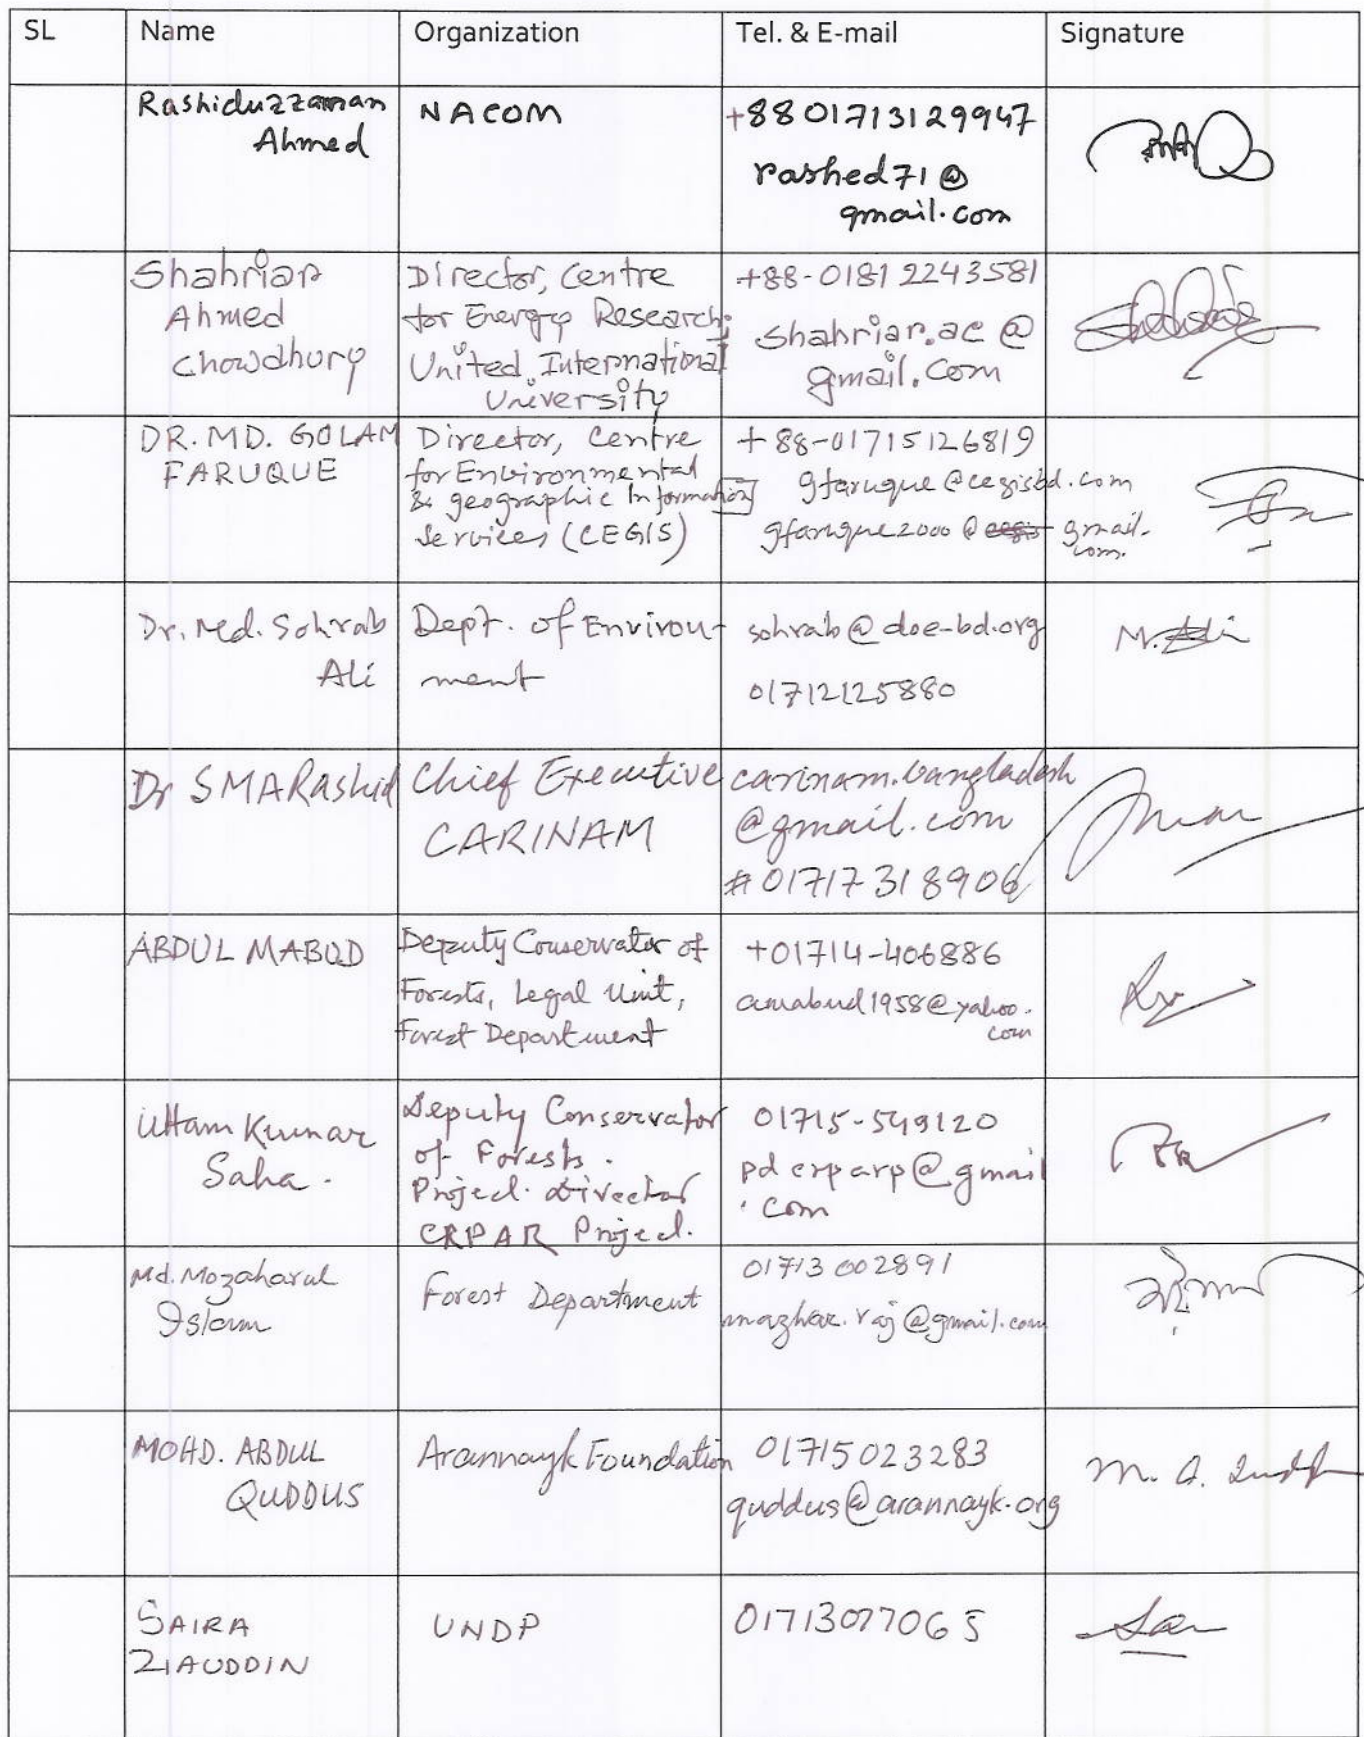 SL Name Organization Tel. & E-mail Signature
Rashiduzzaman
Ahmed
NACOM
+8801713129947
rashed71@
gmail.com
Shahriar
Ahmed
Chowdhury
Director, Centre
for Energy Research,
United International
University
+88-01812243581
Shahriar.ac@
gmail.com
DR. MD. GOLAM
FARUQUE
Director, Centre
for Environmental
& geographic Information
Services (CEGIS)
+88-01715126819
gfaruque@cegisbd.com
gfaruque2000@ gmail.
com.
Dr. Md. Sohrab
Ali
Dept. of Environ-
ment
sohrab@doe-bd.org
01712125880
M. Ali
Dr SMARashid
Chief Executive
CARINAM
carinam.bangladesh
@gmail.com
# 01717318906
ABDUL MABUD
Deputy Conservator of
Forests, Legal Unit,
Forest Department
+01714-406886
amabud1958@yahoo.
com
Uttam Kumar
Saha.
Deputy Conservator
of Forests.
Project Director
CRPAR Project.
01715-549120
pdcrparp@gmail
.com
Md. Mozaharul
Islam
Forest Department
01713002891
mazhar.raj@gmail.com
MOHD. ABDUL
QUDDUS
Arannayk Foundation
01715023283
quddus@arannayk.org
M. A.
SAIRA
ZIAUDDIN
UNDP
01713077065